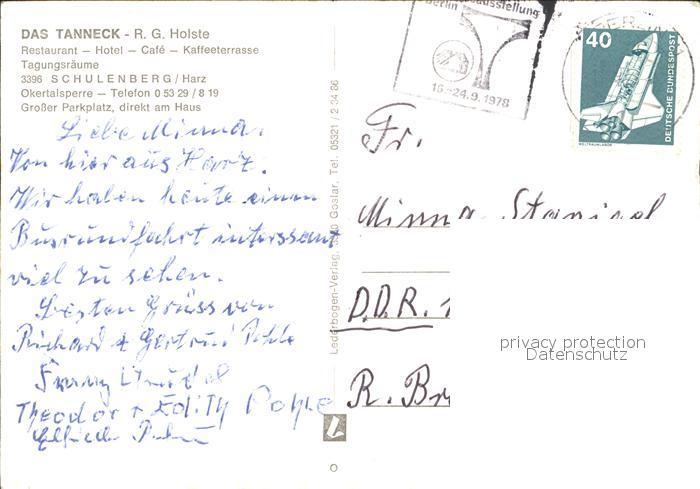 DAS TANNECK - R. G. Holste
Restaurant — Hotel — Café — Kaffeeterrasse
Tagungsräume
3396 SCHULENBERG / Harz
Okertalsperre — Telefon 0 53 29 / 8 19
Großer Parkplatz, direkt am Haus
Liebe Minna.
Von hier aus Harz.
Wir haben heute einen
Busrundfahrt interssant
viel zu sehen.
Besten Grüss von
Richard & Gertrud
Theodor + Edith
Lederbogen-Verlag, Goslar, Tel. 05321 / 2 34 86
ausstellung
Berlin
16.-24.9.1978
40
DEUTSCHE BUNDESPOST
WELTRAUMLABOR
Fr.
Minna
D.D.R. 1
R. Br
privacy protection
Datenschutz